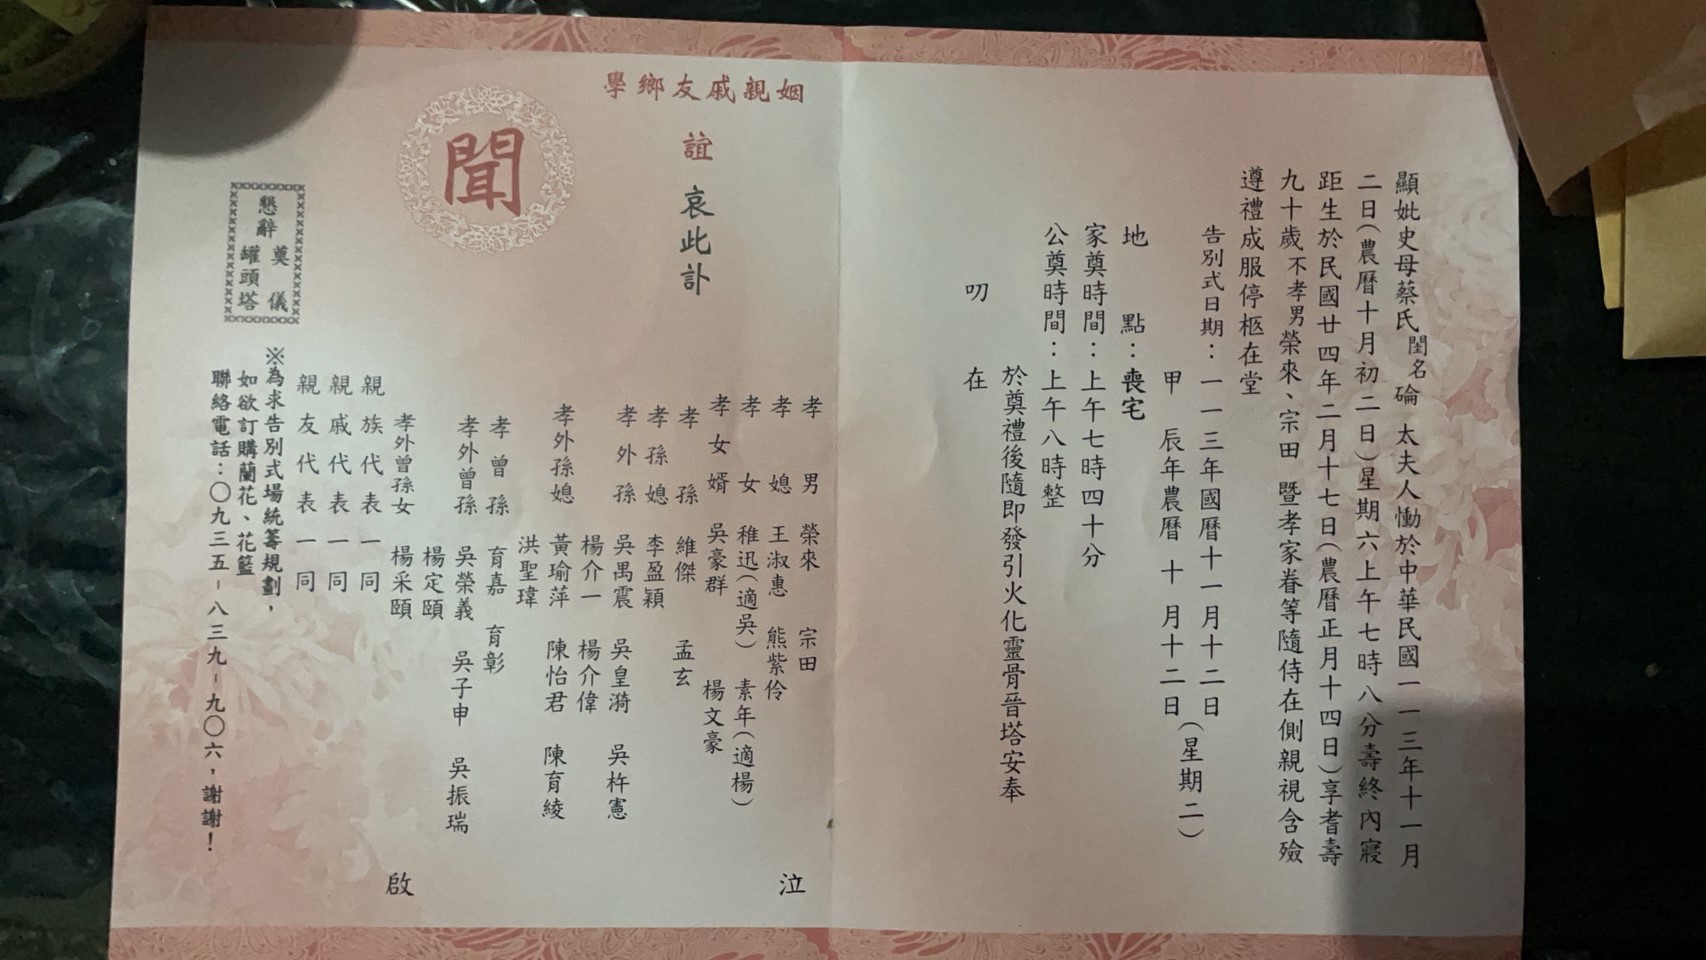 顯妣史母蔡氏閨名碖 太夫人慟於中華民國一一三年十一月
二日(農曆十月初二日)星期六上午七時八分壽終內寢
距生於民國廿四年二月十七日(農曆正月十四日)享耆壽
九十歲不孝男榮來、宗田 暨孝家眷等隨侍在側親視含殮
遵禮成服停柩在堂
告別式日期:一一三年國曆十一月十二日
甲辰年農曆十月十二日
(星期二)
地點:喪宅
家奠時間:上午七時四十分
公奠時間:上午八時整
於奠禮後隨即發引火化靈骨晉塔安奉
叨在
學鄉友戚親姻
誼 哀此訃
聞
孝男 榮來 宗田
孝媳 王淑惠 熊紫伶
孝女 稚迅(適吳) 素年(適楊)
孝女婿 吳豪群 楊文豪
孝孫 維傑 孟玄
孝孫媳 李盈穎
孝外孫 吳禹震 吳皇漪 吳杵憲
楊介一 楊介偉
孝外孫媳 黃瑜萍 陳怡君 陳育綾
洪聖瑋
孝曾孫 育嘉 育彰
孝外曾孫 吳榮義 吳子申 吳振瑞
楊定頤
孝外曾孫女 楊采頤
泣
親族代表一同
親戚代表一同
親友代表一同
啟
懇辭 奠儀
罐頭塔
※為求告別式場統籌規劃,
如欲訂購蘭花、花籃
聯絡電話:〇九三五-八三九-九〇六,謝謝!